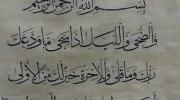 بسم الله الرحمن الرحيم
والضحى والليل اذا سجى ما ودعك
ربك وما قلى وللآخرة خير لك من الأولى